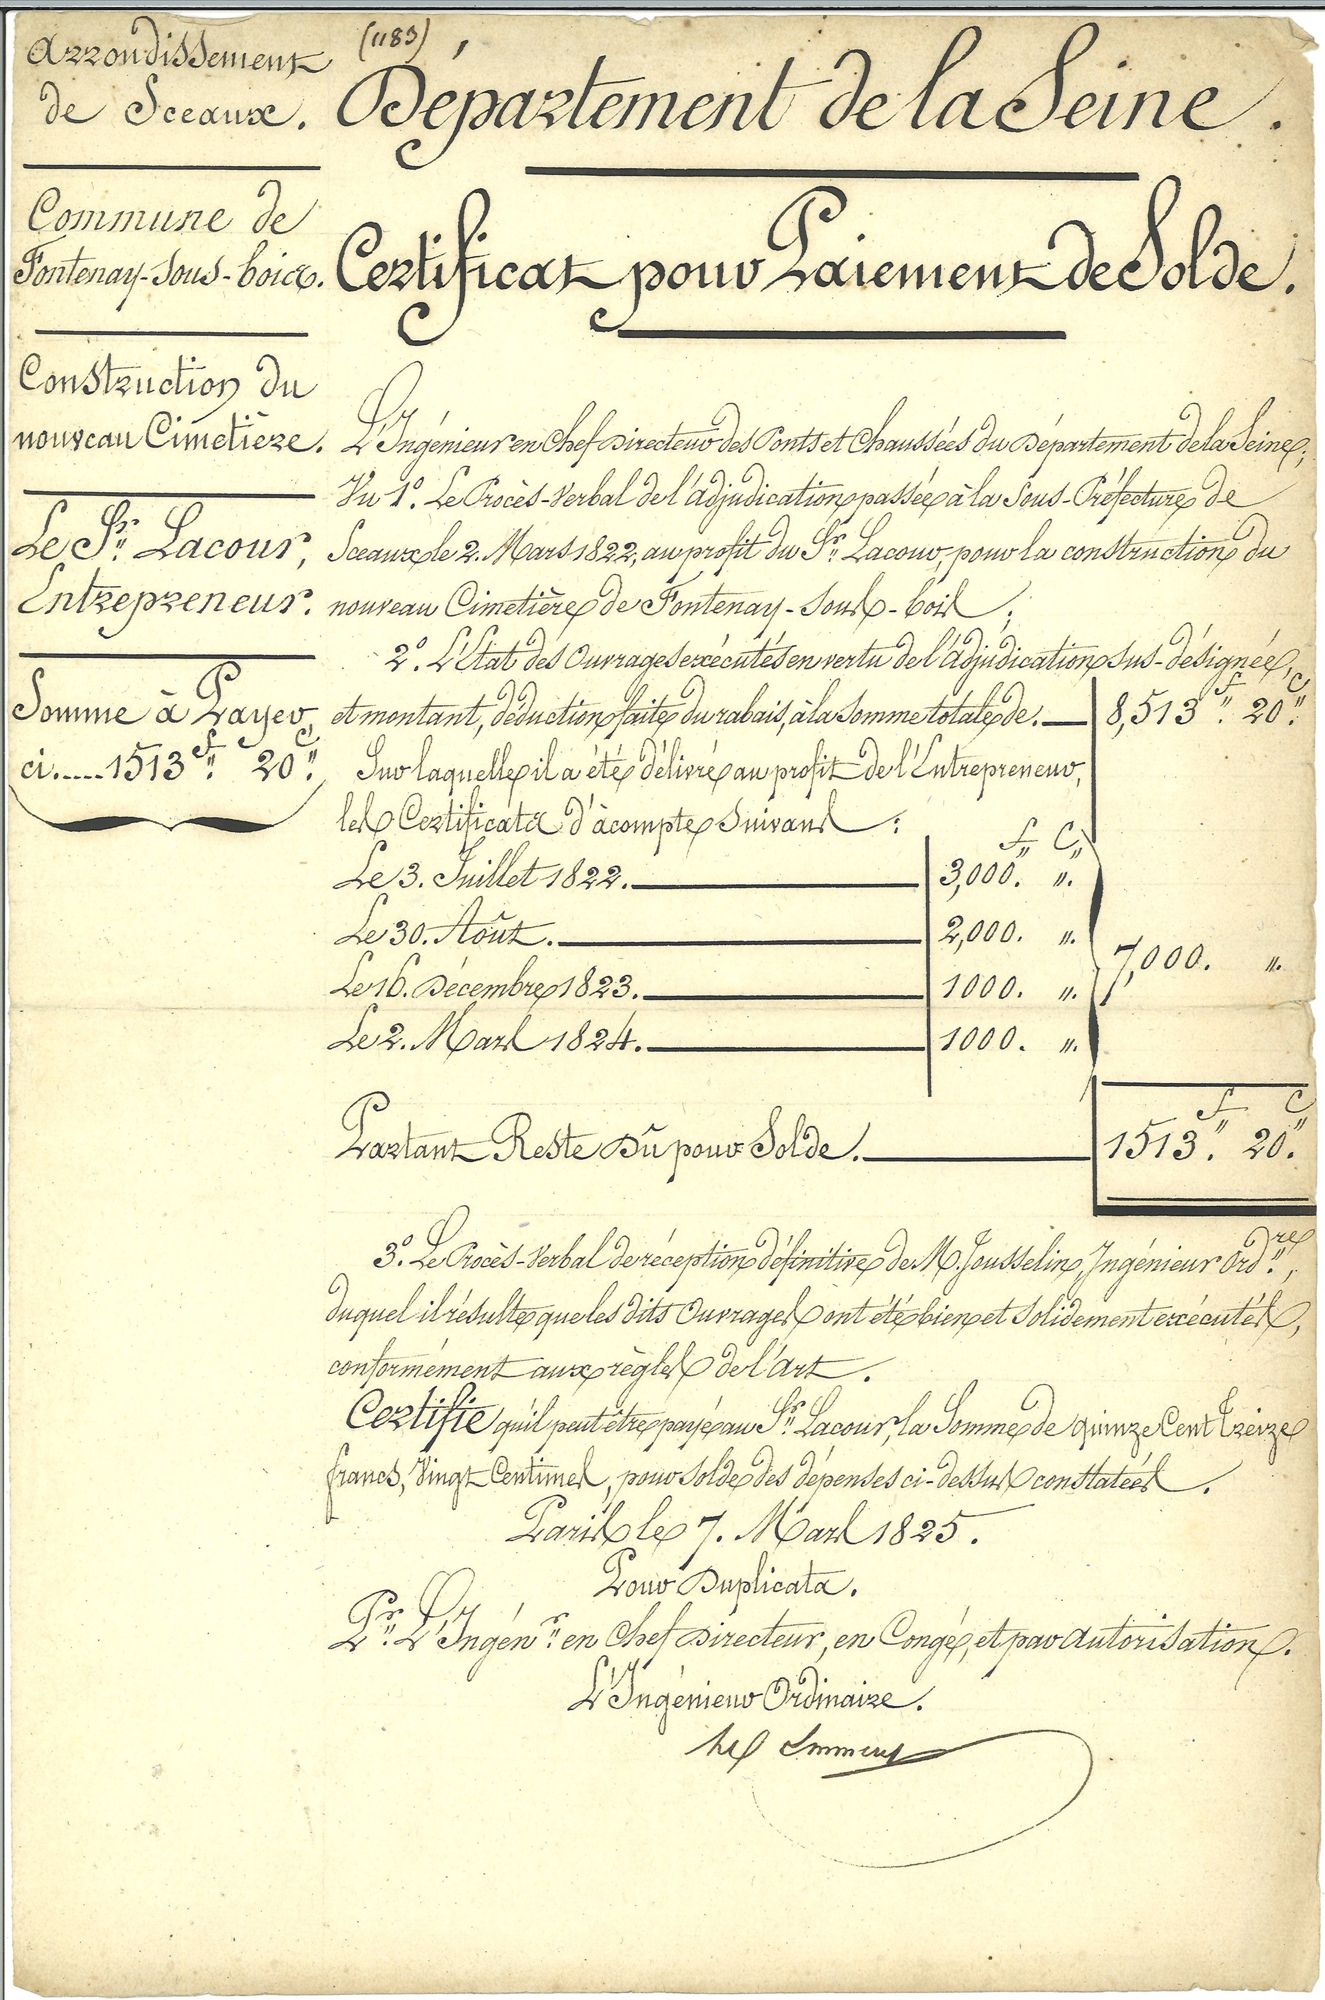 Arrondissement
de Sceaux.
Commune de
Fontenay-Sous-bois.
Construction du
nouveau Cimetière.
Le Sr. Lacour,
Entrepreneur.
Somme à Payer,
ci.....1513f. 20c.
(1183)
Département de la Seine.
Certificat pour Paiement de Solde.
L'Ingénieur en Chef Directeur des Ponts et Chaussées du Département de la Seine;
Vu 1º. Le Procès-Verbal de l'adjudication passée à la Sous-Préfecture de
Sceaux le 2. Mars 1822, au profit du Sr. Lacour, pour la construction du
nouveau Cimetière de Fontenay-Sous-bois;
2º. L'Etat des Ouvrages exécutés en vertu de l'adjudication sus-désignée,
et montant, déduction faite du rabais, à la Somme totale de. 8,513f. 20c.
Sur laquelle il a été délivré au profit de l'Entrepreneur,
les Certificats d'àcompte Suivans:
f. C.
Le 3. Juillet 1822. 3,000. ".
Le 30. Août. 2,000. ".
7,000. ".
Le 16. Décembre 1823. 1000. ".
Le 2. Mars 1824. 1000. ".
Partant Reste Dû pour Solde. 1513f. 20c.
3º. Le Procès-Verbal de réception définitive de M. Jousselin, Ingénieur Ordre.,
duquel il résulte que les dits Ouvrages ont été bien et Solidement exécutés,
conformément aux règles de l'art.
Certifie qu'il peut être payé au Sr. Lacour, la Somme de quinze Cent Treize
francs, Vingt Centimes, pour Solde des dépenses ci-dessus constatées.
Paris le 7. Mars 1825.
Pour Duplicata.
Pr. L'Ingénr. en Chef Directeur, en Congé, et par autorisation.
L'Ingénieur Ordinaire.